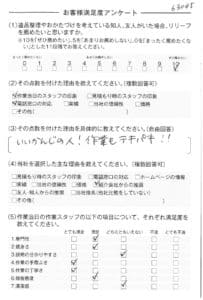 63005
お客様満足度アンケート
(1)遺品整理やおかたづけを考えている知人、友人がいた場合、リリーフ
を薦めたいと思いますか。
※10を「ぜひ薦めたい」、5を「あまりお薦めしない」、0を「まったく薦めたくな
い」とした11段階でお答えください。
0 1 2 3 4 5 6 7 8 9 10
(2)その点数を付けた理由を教えてください。(複数回答可)
作業当日のスタッフの印象 見積もり時のスタッフの印象
電話窓口の対応 当社の信頼性 実績 価格
その他(
(3)その点数を付けた理由を具体的に教えてください。(自由回答)
いいかんじの人!作業もテキパキ!!
(4)当社を選択した主な理由を教えてください。(複数回答可)
見積もり時のスタッフの印象 電話窓口の対応 ホームページの情報
実績 当社の信頼性 価格 紹介会社からの推薦
友人・知人の推薦 他社に比較して
その他(
(5)作業当日の作業スタッフの以下の項目について、それぞれ満足度を
教えてください。
とても満足 満足 どちらともいえない 不満 とても不満
1.専門性
2.親身さ
3.説明の分かりやすさ
4.作業の手際よさ
5.作業の丁寧さ
6.価格
7.清潔感